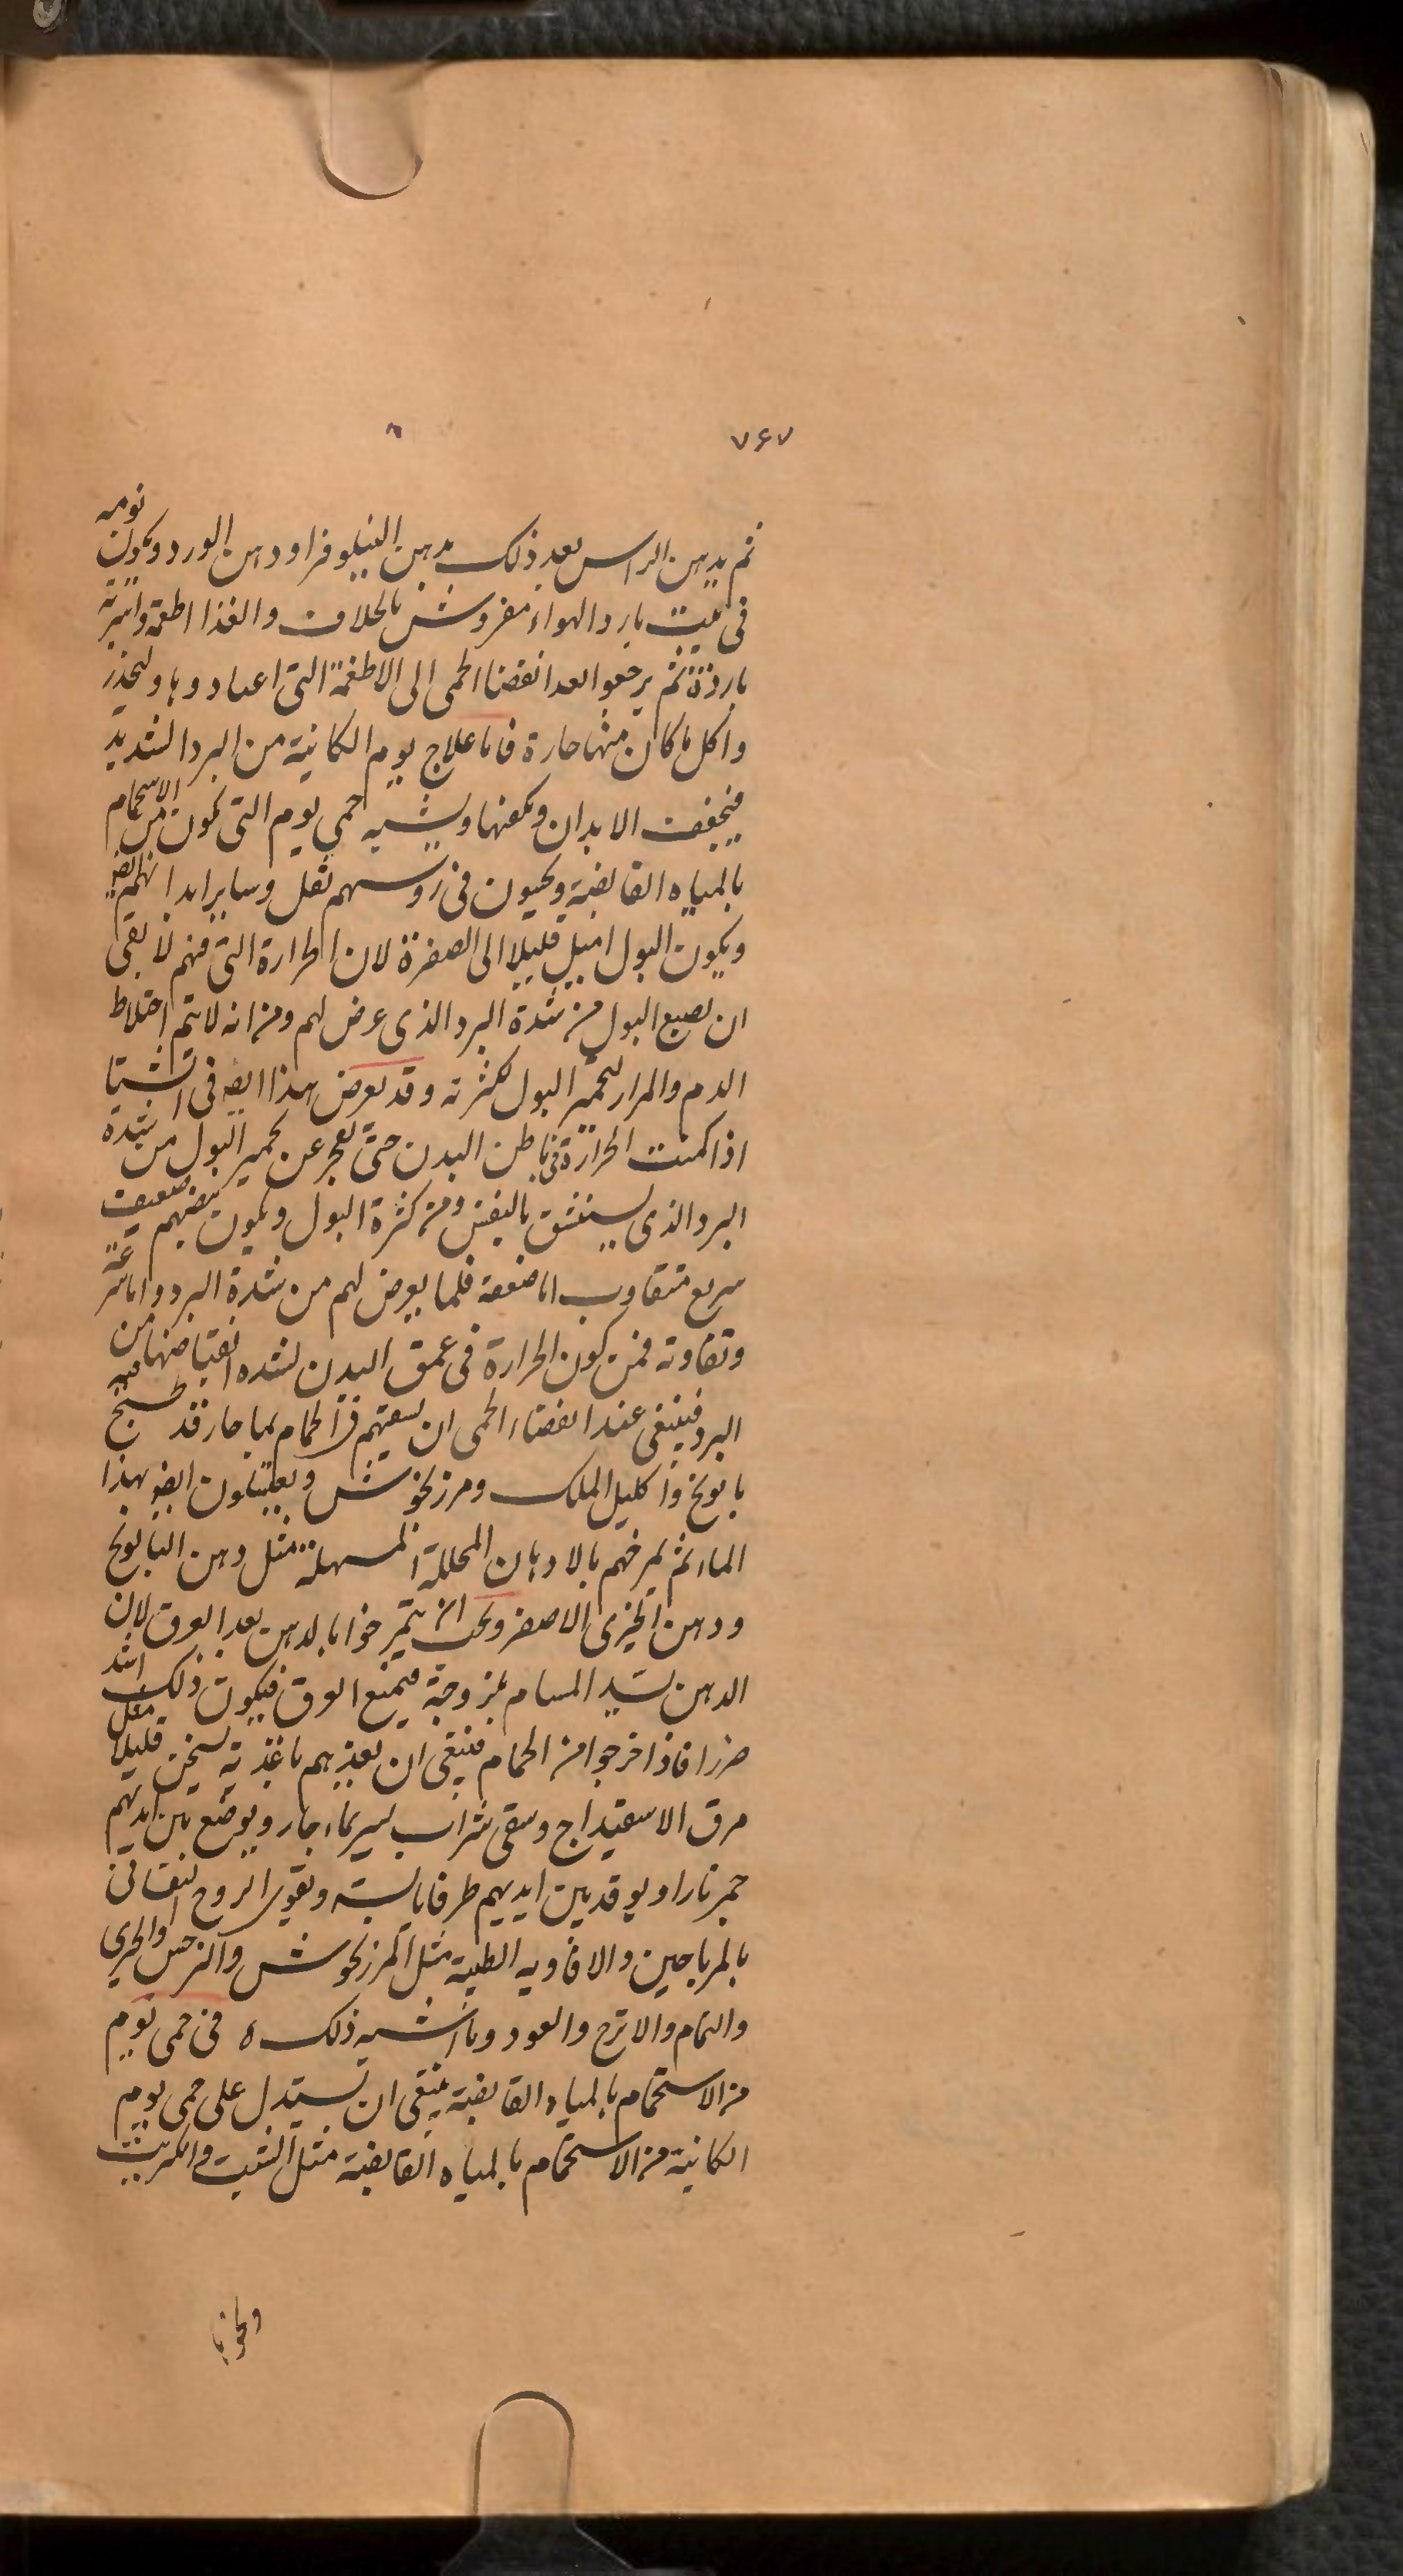 ٧۶٧
ثم يدهن الراس بعد ذلك بدهن النيلوفر او دهن الورد ويكون نومه
فى بيت بارد الهواء مفروش بالخلاف والغذا اطعمة واشربة
باردة ثم يرجعوا بعد انقضا الحمى الى الاطعمة التى اعتادوها وليحذر
واكل ما كان منها حارة فاما علاج يوم الكاينة من البرد الشديد
فيجفف الابدان ويكفنها ويشبه حمى يوم التى تكون من الاستحمام
بالمياه القابضة ويحيون فى روسهم ثقل وساير ابدانهم ايضا
ويكون البول اميل قليلا الى الصفرة لان الحرارة التى فيهم لا يقى
ان يصبع البول من شدة البرد الذى عرض لهم ومن انه لا يتم اختلاط
الدم والمرار لتحمير البول لكثرته وقد يعرض هذا ايضه فى الشتا
اذا كمنت الحرارة فى باطن البدن حتى تعجز عن تحمير البول من شدة
البرد الذى يستنشق بالنفس ومن كثرة البول ويكون نبضهم ضعيف
سريع متقاوب اما ضعفه فلما يعرض لهم من شدة البرد واما سرعته
وتفاوته فمن كون الحرارة فى عمق البدن لشده انقباضها من
البرد فينبغى عند انقضاء الحمى ان يسقيهم فى الحمام بما حار قد طبخ فيه
بابونج واكليل الملك ومرزنخوش ويعتبلون ايضو بهذا
الماء ثم يمرخهم بالادهان المحللة المسهلة مثل دهن البابونج
ودهن الخيرى الاصفر ويجب ان يتمرخوا بالدهن بعد العرق لان
الدهن يسد المسام بلزوجة فيمنع العرق فيكون ذلك اشد
ضررا فاذا خرجوا من الحمام فينبغى ان يغذيهم باغذية يسخن قليلا مثل
مرق الاسفيداج وسقى شراب يسير بماء حار ويوضع بين ايديهم
جمر نارا ويوقد بين ايديهم طرفا يابسة ويقوى الروح النفسانى
بالرياحين والافاويه الطيبة مثل المرزنجوش والنرجس والخيرى
والنمام والاترج والعود وما اشبه ذلك ه فى حمى يوم
من الاستحمام بالمياه القابضة ينبغى ان يستدل على حمى يوم
الكاينة من الاستحمام بالمياه القابضة مثل الشب والكبريت